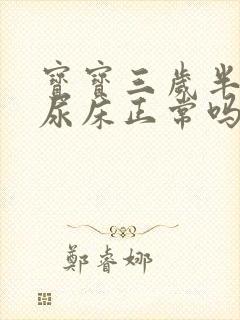 寶寶三歲半
尿床正常嗎
鄭睿娜